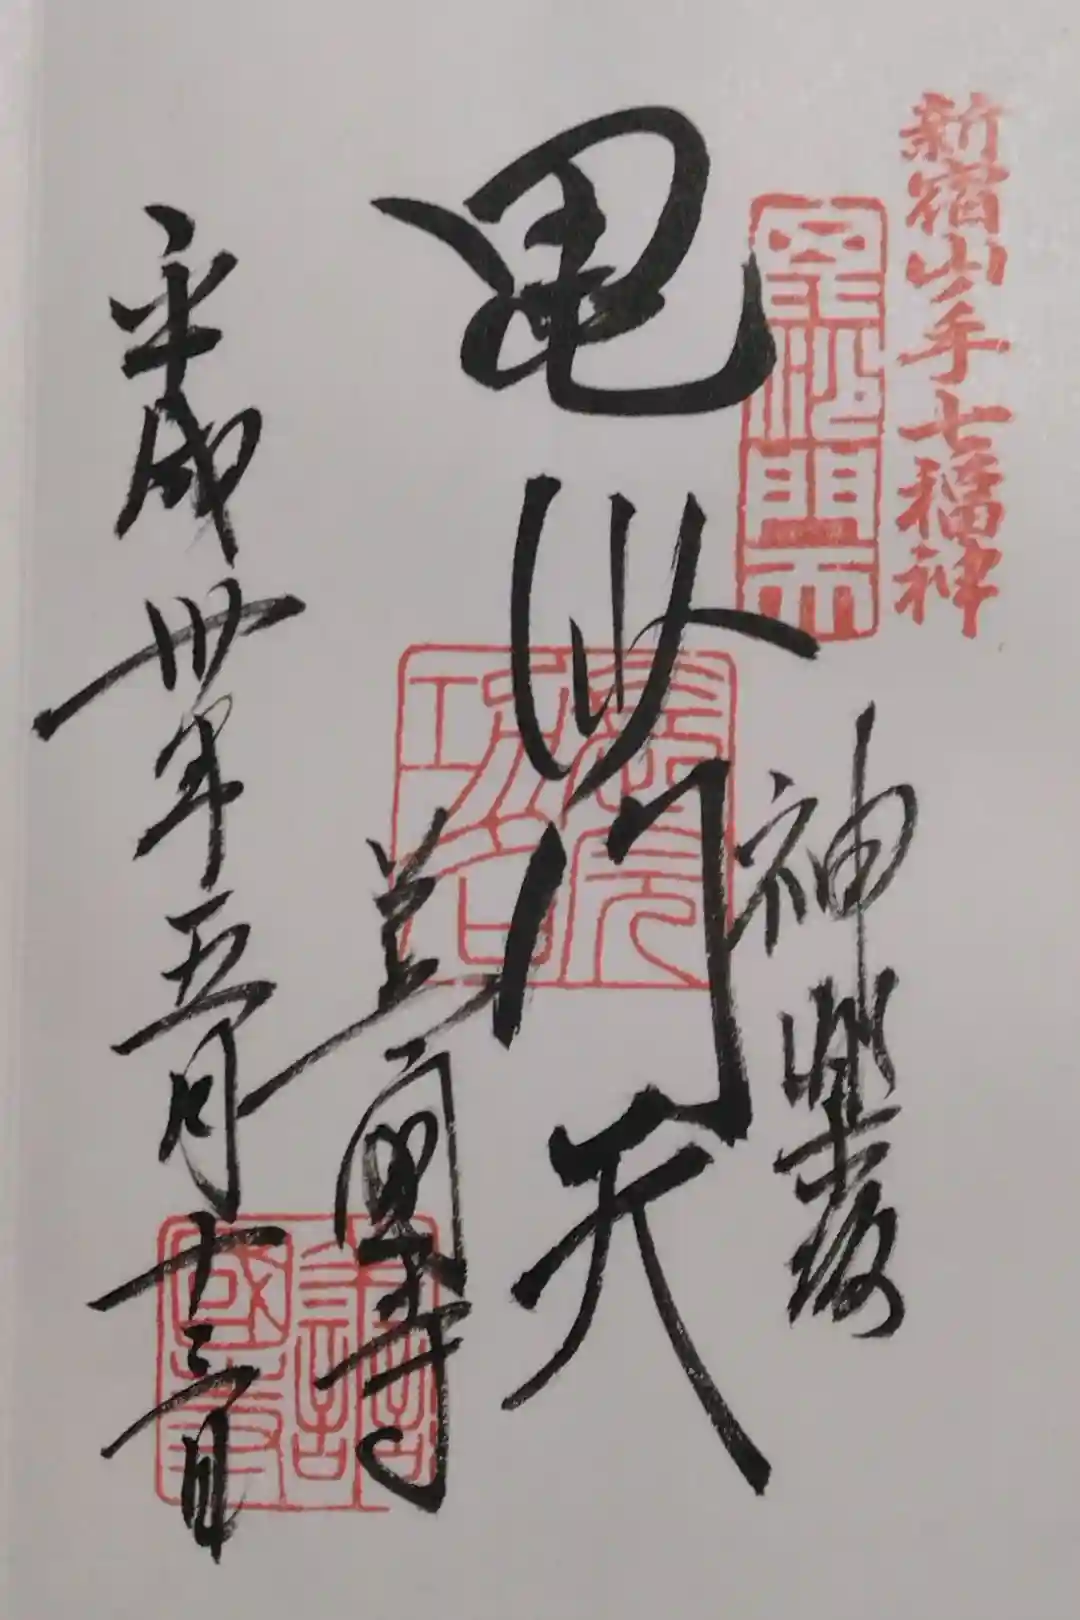 新宿山手七福神
毘沙門天
神楽坂
毘沙門天
善國寺
平成卅年五月十三日